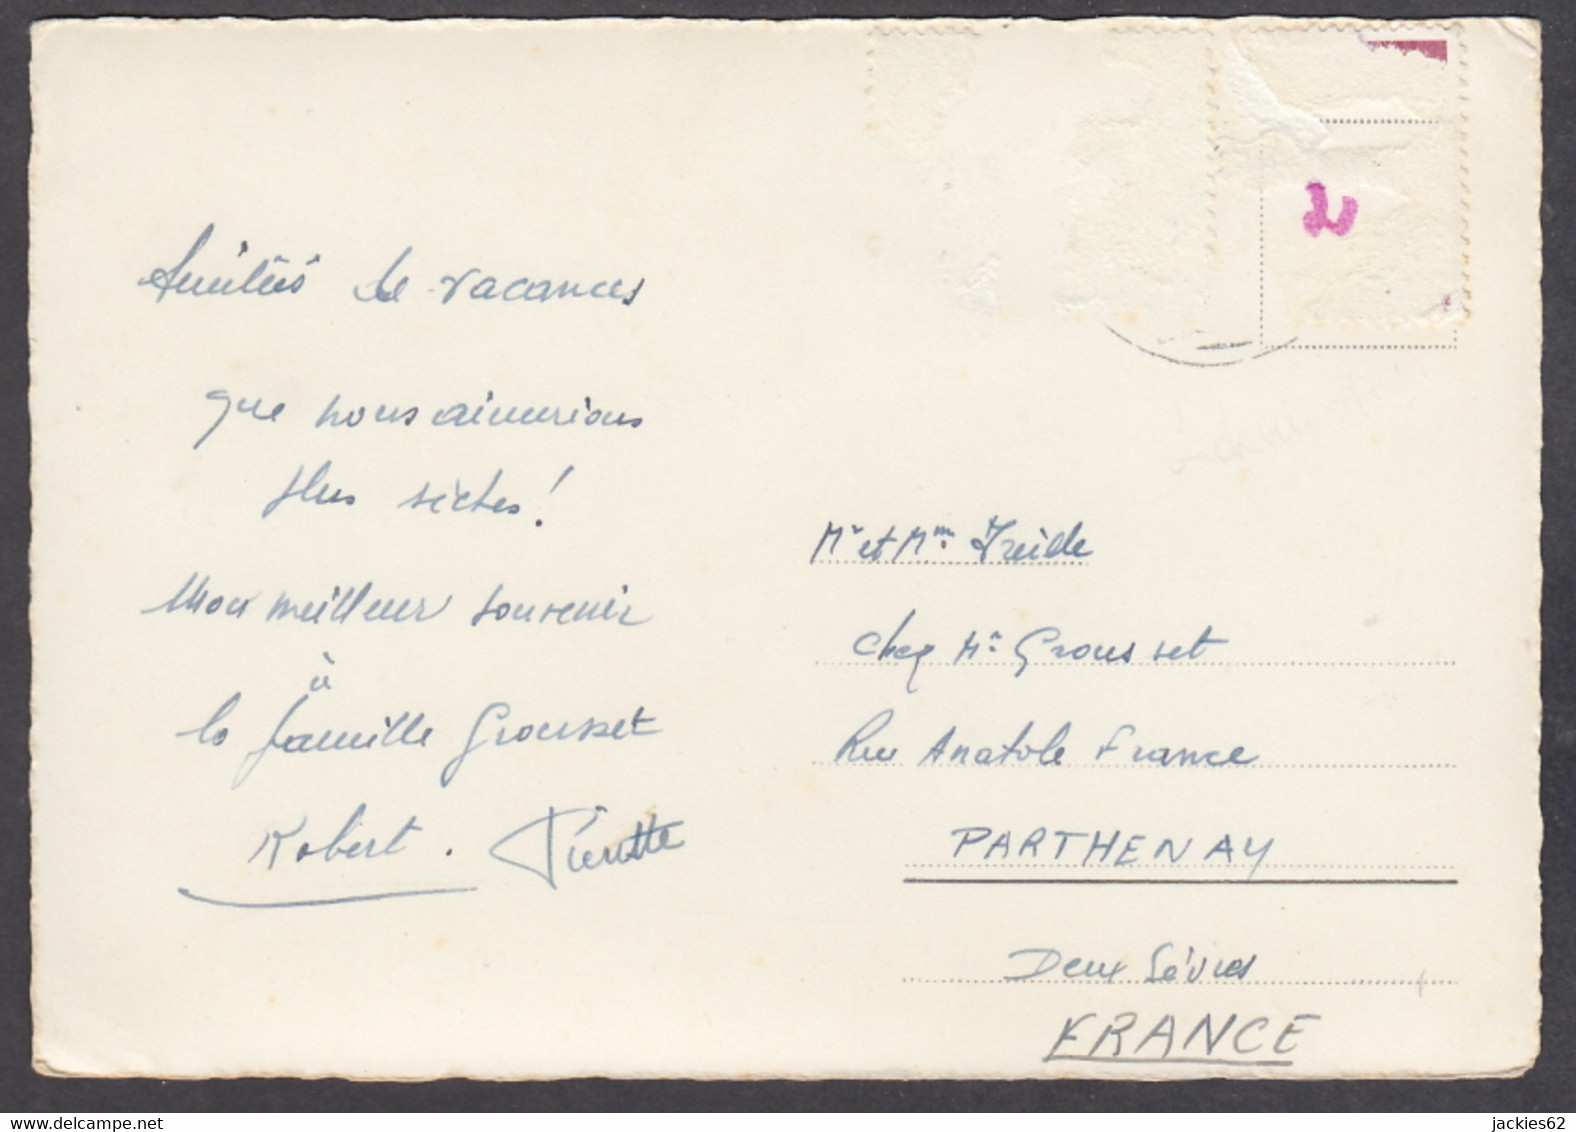 Amitiés de vacances
que nous aimerions
plus sèches!
Mon meilleur souvenir
à
la famille Grousset
Robert. Pierrette
Mr et Mme Treide
chez Mr Grousset
Rue Anatole France
PARTHENAY
Deux Sèvres
FRANCE
jackies62